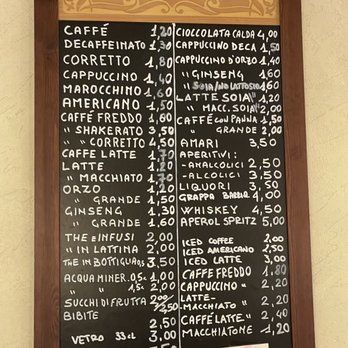 CAFFÉ 1,20
DECAFFEINATO 1,30
CORRETTO 1,80
CAPPUCCINO 1,40
MAROCCHINO 1,60
AMERICANO 1,50
CAFFÉ FREDDO 1,60
" SHAKERATO 3,50
" CORRETTO 4,50
CAFFE LATTE 1,70
LATTE 1,20
" MACCHIATO 1,70
ORZO 1,20
" GRANDE 1,50
GINSENG 1,30
" GRANDE 1,60
THE E INFUSI 2,00
" IN LATTINA 2,00
THE IN BOTTIGLIA 3,50
ACQUA MINER. 0,5L 1,00
" " 1,5L 2,00
SUCCHI DI FRUTTA 2,00/2,50
BIBITE 2,50
VETRO 33cl 3,00
CIOCCOLATA CALDA 4,00
CAPPUCCINO DECA 1,50
CAPPUCCINO D'ORZO 1,40
" GINSENG 1,60
" SOIA/NO LATTOSIO 1,60
LATTE SOIA 1,20
" MACC. SOIA 2,00
CAFFÉ CON PANNA 1,50
" GRANDE 2,00
AMARI 3,50
APERITIVI:
-ANALCOLICI 2,50
-ALCOLICI 3,50
LIQUORI 3,50
GRAPPA 4,00
WHISKEY 4,50
APEROL SPRITZ 5,00
ICED COFFEE 2,00
ICED AMERICANO 2,50
ICED LATTE 3,00
CAFFE FREDDO 1,80
CAPPUCCINO " 2,20
LATTE-
MACCHIATO " 2,20
CAFFÉ LATTE " 2,40
MACCHIATONE 1,20